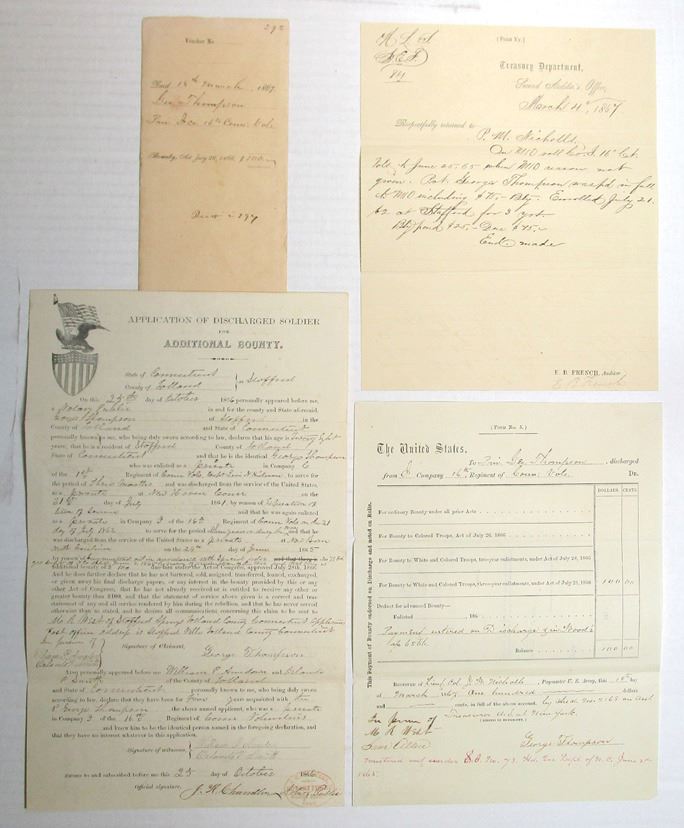 292
Voucher No
Paid 18th March, 1867
Geo. Thompson
16th Conn. Vols
Bounty, Act July 28, 1866, $100
(Form No.)
Treasury Department,
Second Auditor's Office,
March 4", 1867
Respectfully returned to
P. M. Nicholls,
On M.O roll Co. I. 16" Ct.
Vols. to June 25. 65 when M.O reason not
given. Pvt. George Thompson was p'd in full
to M.O including $75,- Bty. Enrolled July 21.
62 at Stafford for 3 yrs.
Bty paid $25,- Due $75,-
made
E. B. FRENCH, Auditor
E B French
APPLICATION OF DISCHARGED SOLDIER
FOR
ADDITIONAL BOUNTY.
State of Connecticut
County of Tolland
} ss Stafford
On this 25th day of October 1866 personally appeared before me,
a Notary Public in and for the county and State aforesaid,
George Thompson of Stafford in the
County of Tolland and State of Connecticut
personally known to me, who being duly sworn according to law, declares that his age is twenty eight
years; that he is resident of Stafford County of Tolland
State of Connecticut and that he is the identical George Thompson
who was enlisted as a private in Company C
of the 1st Regiment of Conn Vols, to serve for
the period of Three months and was discharged from the service of the United States,
as a private at New Haven Conn on the
31st day of July 1861, by reason of Expiration of
Term of Service and that he was again enlisted
as a private in Company I of the 16th Regiment of Conn Vols on the 21
day of July 1862 to serve for the period of three years or during the war and that he
was discharged from the service of the United States as a private at New Bern
North Carolina on the 24th day of June 1865
Additional bounty of $ has due him under the Act of Congress, approved July 28th, 1866.
And he does further declare that he has not bartered, sold, assigned, transferred, loaned, exchanged,
or given away his final discharge papers, or any interest in the bounty provided by this or any
other Act of Congress, that he has not already received or is entitled to receive any other or
greater bounty than $100, and that the statement of service above given is a correct and true
statement of any and all service rendered by him during the rebellion, and that he has never served
otherwise than as stated, and he desires all communications concerning this claim to be sent to
of Stafford Springs Tolland County Connecticut. Applicants
Post office address is Stafford Tolland County Connecticut
In presence of
Signature of Claimant, George Thompson
Also personally appeared before me William P. and Orlando
P. Smith of the County of Tolland
and State of Connecticut personally known to me, who being duly sworn
according to law, declare that they have been for Five years acquainted with
George Thompson the above named applicant, who was a private
in Company I of the 16th Regiment of Conn Volunteers,
and know him to be the identical person named in the foregoing declaration, and
that they have no interest whatever in this application.
Signature of witnesses,
Sworn to and subscribed before me this 25 day of October 1866
Official signature, J. H. Chandler Notary Public
(Form No. 5.)
The United States,
To Geo. Thompson, discharged
from I Company, 16th Regiment of Conn. Vols. Dr.
This Payment of Bounty endorsed on Discharge and noted on Rolls.
DOLLARS. CENTS.
For ordinary Bounty under all prior Acts
For Bounty to Colored Troops, Act of July 26, 1866
For Bounty to White and Colored Troops, two-year enlistments, under Act of July 28, 1866
For Bounty to White and Colored Troops, three-year enlistments, under Act of July 28, 1866 100 00
Deduct for advanced Bounty—
Enlisted , 186
Payment entered on Discharge
Balance 100 00
Received of Col. J. M. Nicholls, Paymaster U. S. Army, this 18th day
of March 1867 One hundred dollars
and cents, in full of the above account,
Treasurer U.S. at New York
In presence of
George Thompson